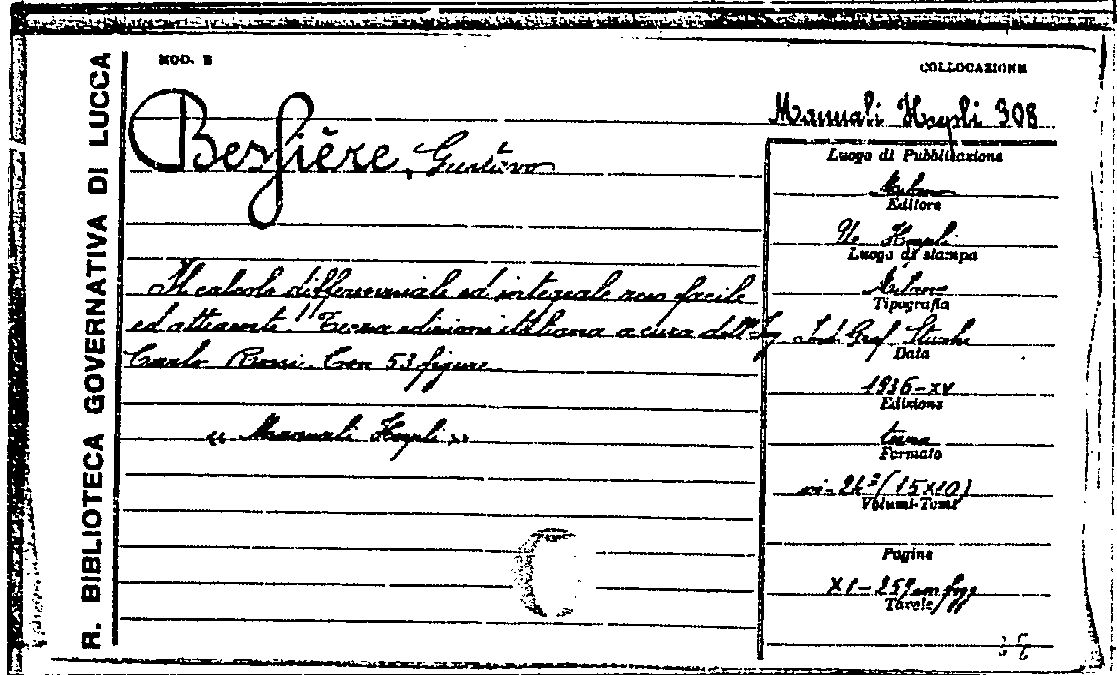 R. BIBLIOTECA GOVERNATIVA DI LUCCA
MOD. B
COLLOCAZIONE
Manuali Hoepli 308
Bessière, Gustavo
Luogo di Pubblicazione
Milano
Editore
U. Hoepli
Luogo di stampa
Milano
Tipografia
Ind. Graf. Stucchi
Data
1936-XV
Edizione
terza
Formato
(15x10)
Volumi-Tomi
Pagine
XI-257 con figg
Tavole
Il calcolo differenziale ed integrale reso facile
ed attraente. Terza edizione italiana a cura dell'Ing.
Carlo Rossi. Con 53 figure.
« Manuali Hoepli »